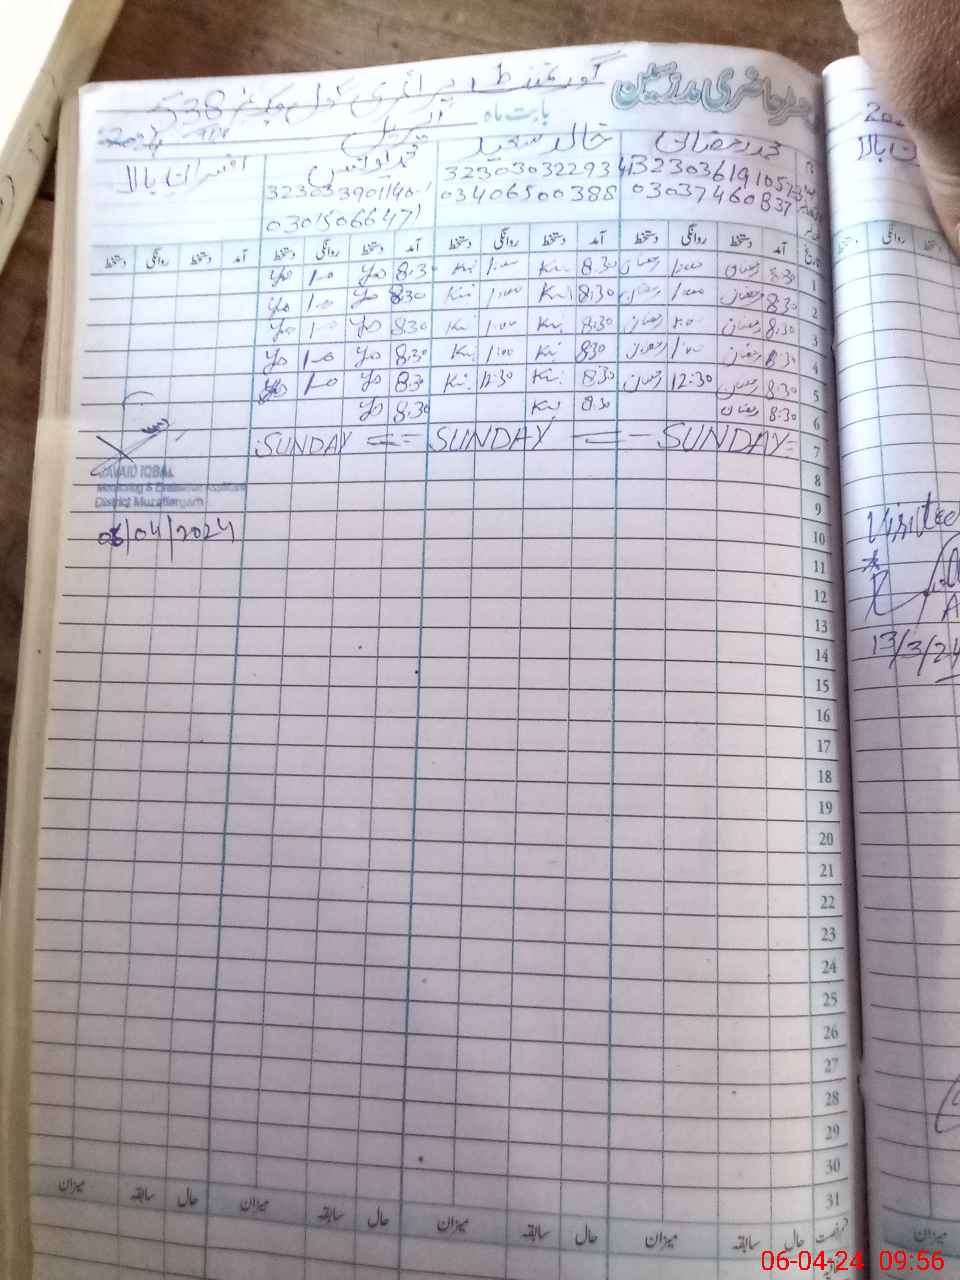 رجسٹر حاضری مدرسین
گورنمنٹ پرائمری سکول چک نمبر 538
بابت ماہ اپریل 2024
محمد رمضان خالد سعید محمد اویس افسران بالا
3230303229341
03037460837 03406500388 03015066471
تاریخ آمد دستخط روانگی دستخط آمد دستخط روانگی دستخط آمد دستخط روانگی دستخط آمد دستخط روانگی دستخط
1 8:30 رمضان 1:00 رمضان 8:30 Kn 1:00 Kn 8:30 Yo 1:00 Yo
2 8:30 رمضان 1:00 رمضان 8:30 Kn 1:00 Kn 8:30 Yo 1:00 Yo
3 8:30 رمضان 1:00 رمضان 8:30 Kn 1:00 Kn 8:30 Yo 1:00 Yo
4 8:30 رمضان 1:00 رمضان 8:30 Kn 1:00 Kn 8:30 Yo 1:00 Yo
5 8:30 رمضان 12:30 رمضان 8:30 Kn 12:30 Kn 8:30 Yo 1:00 Yo
6 8:30 رمضان 8:30 Kn 8:30 Yo
7 SUNDAY == SUNDAY == SUNDAY
8
JAVAID IQBAL
Monitoring & Evaluation Assistant
District Muzaffargarh
9
06/04/2024
10
11
12
13
14
15
16
17
18
19
20
21
22
23
24
25
26
27
28
29
30
31
حال سابقہ میزان حال سابقہ میزان حال سابقہ میزان حال سابقہ میزان
افسران بالا
روانگی
Visited
13/3/24
میزان
06-04-24 09:56